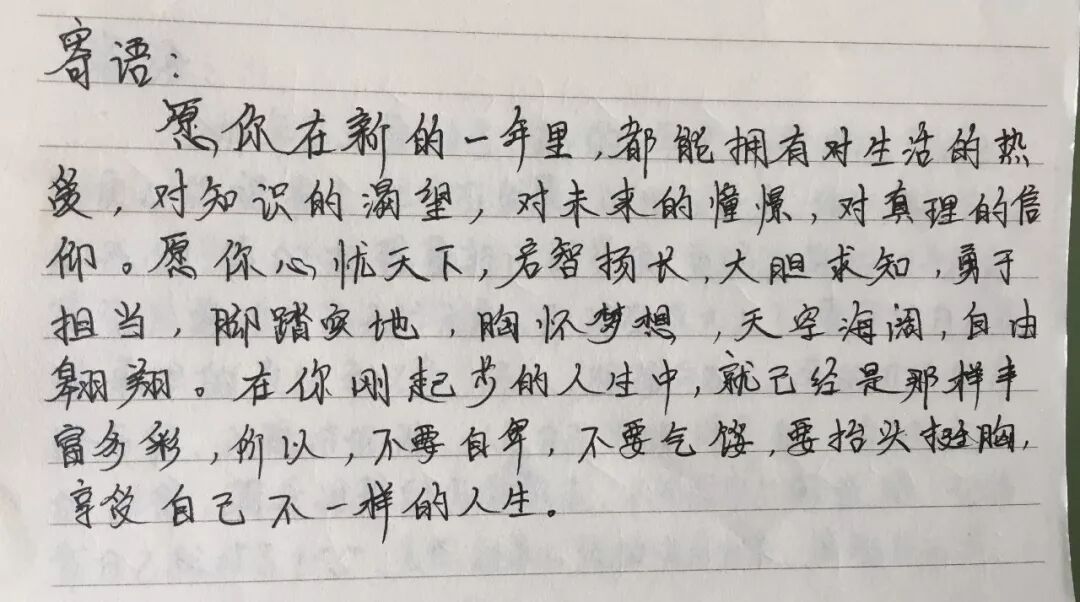 寄语：
愿你在新的一年里，都能拥有对生活的热
爱，对知识的渴望，对未来的憧憬，对真理的信
仰。愿你心忧天下，启智扬长，大胆求知，勇于
担当，脚踏实地，胸怀梦想，天空海阔，自由
翱翔。在你刚起步的人生中，就已经是那样丰
富多彩，所以，不要自卑，不要气馁，要抬头挺胸，
享受自己不一样的人生。